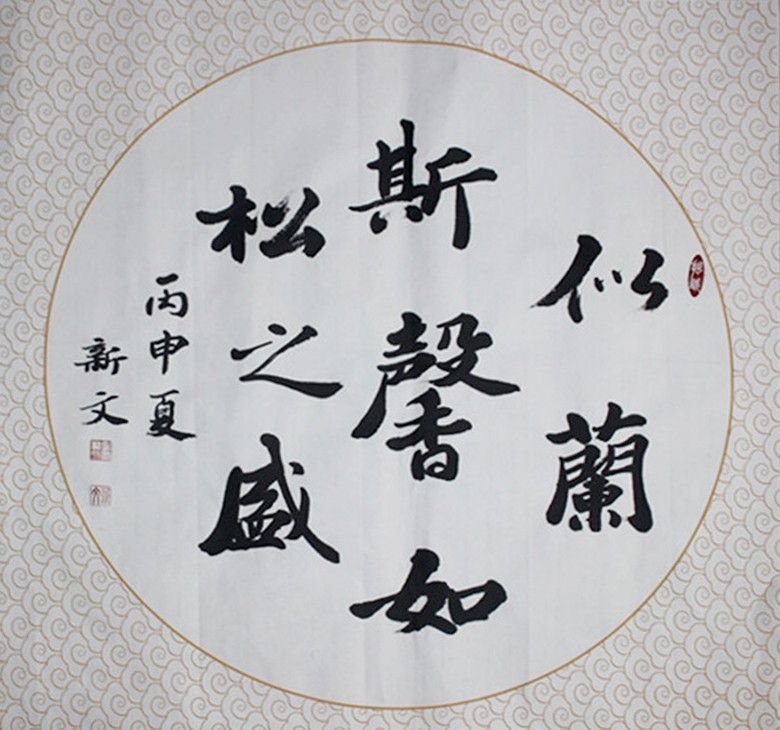 似蘭
斯馨如
松之盛
丙申夏
新文